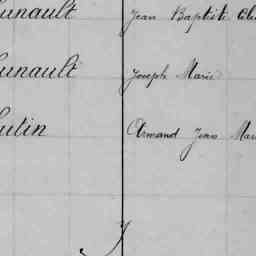 unault Jean Baptiste
unault Joseph Marie
utin Armand Jean Mar